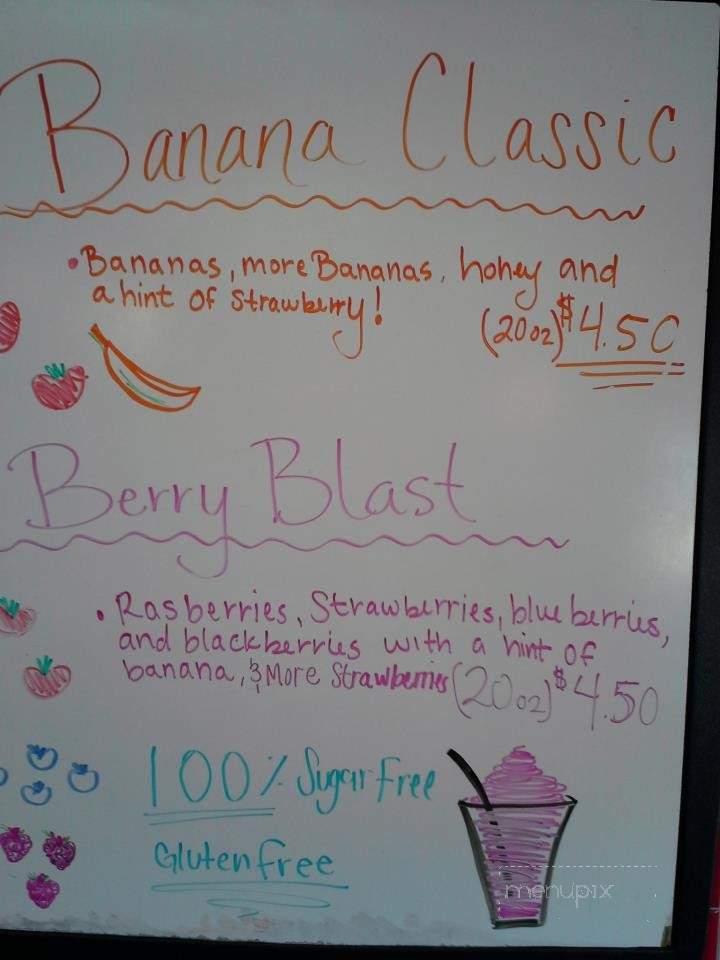 Banana Classic
• Bananas, more Bananas, honey and
a hint of Strawberry!
(20oz) $4.50
Berry Blast
• Rasberries, Strawberries, blueberries,
and blackberries with a hint of
banana, & More Strawberries (20oz) $4.50
100% Sugar Free
Gluten free
menupix